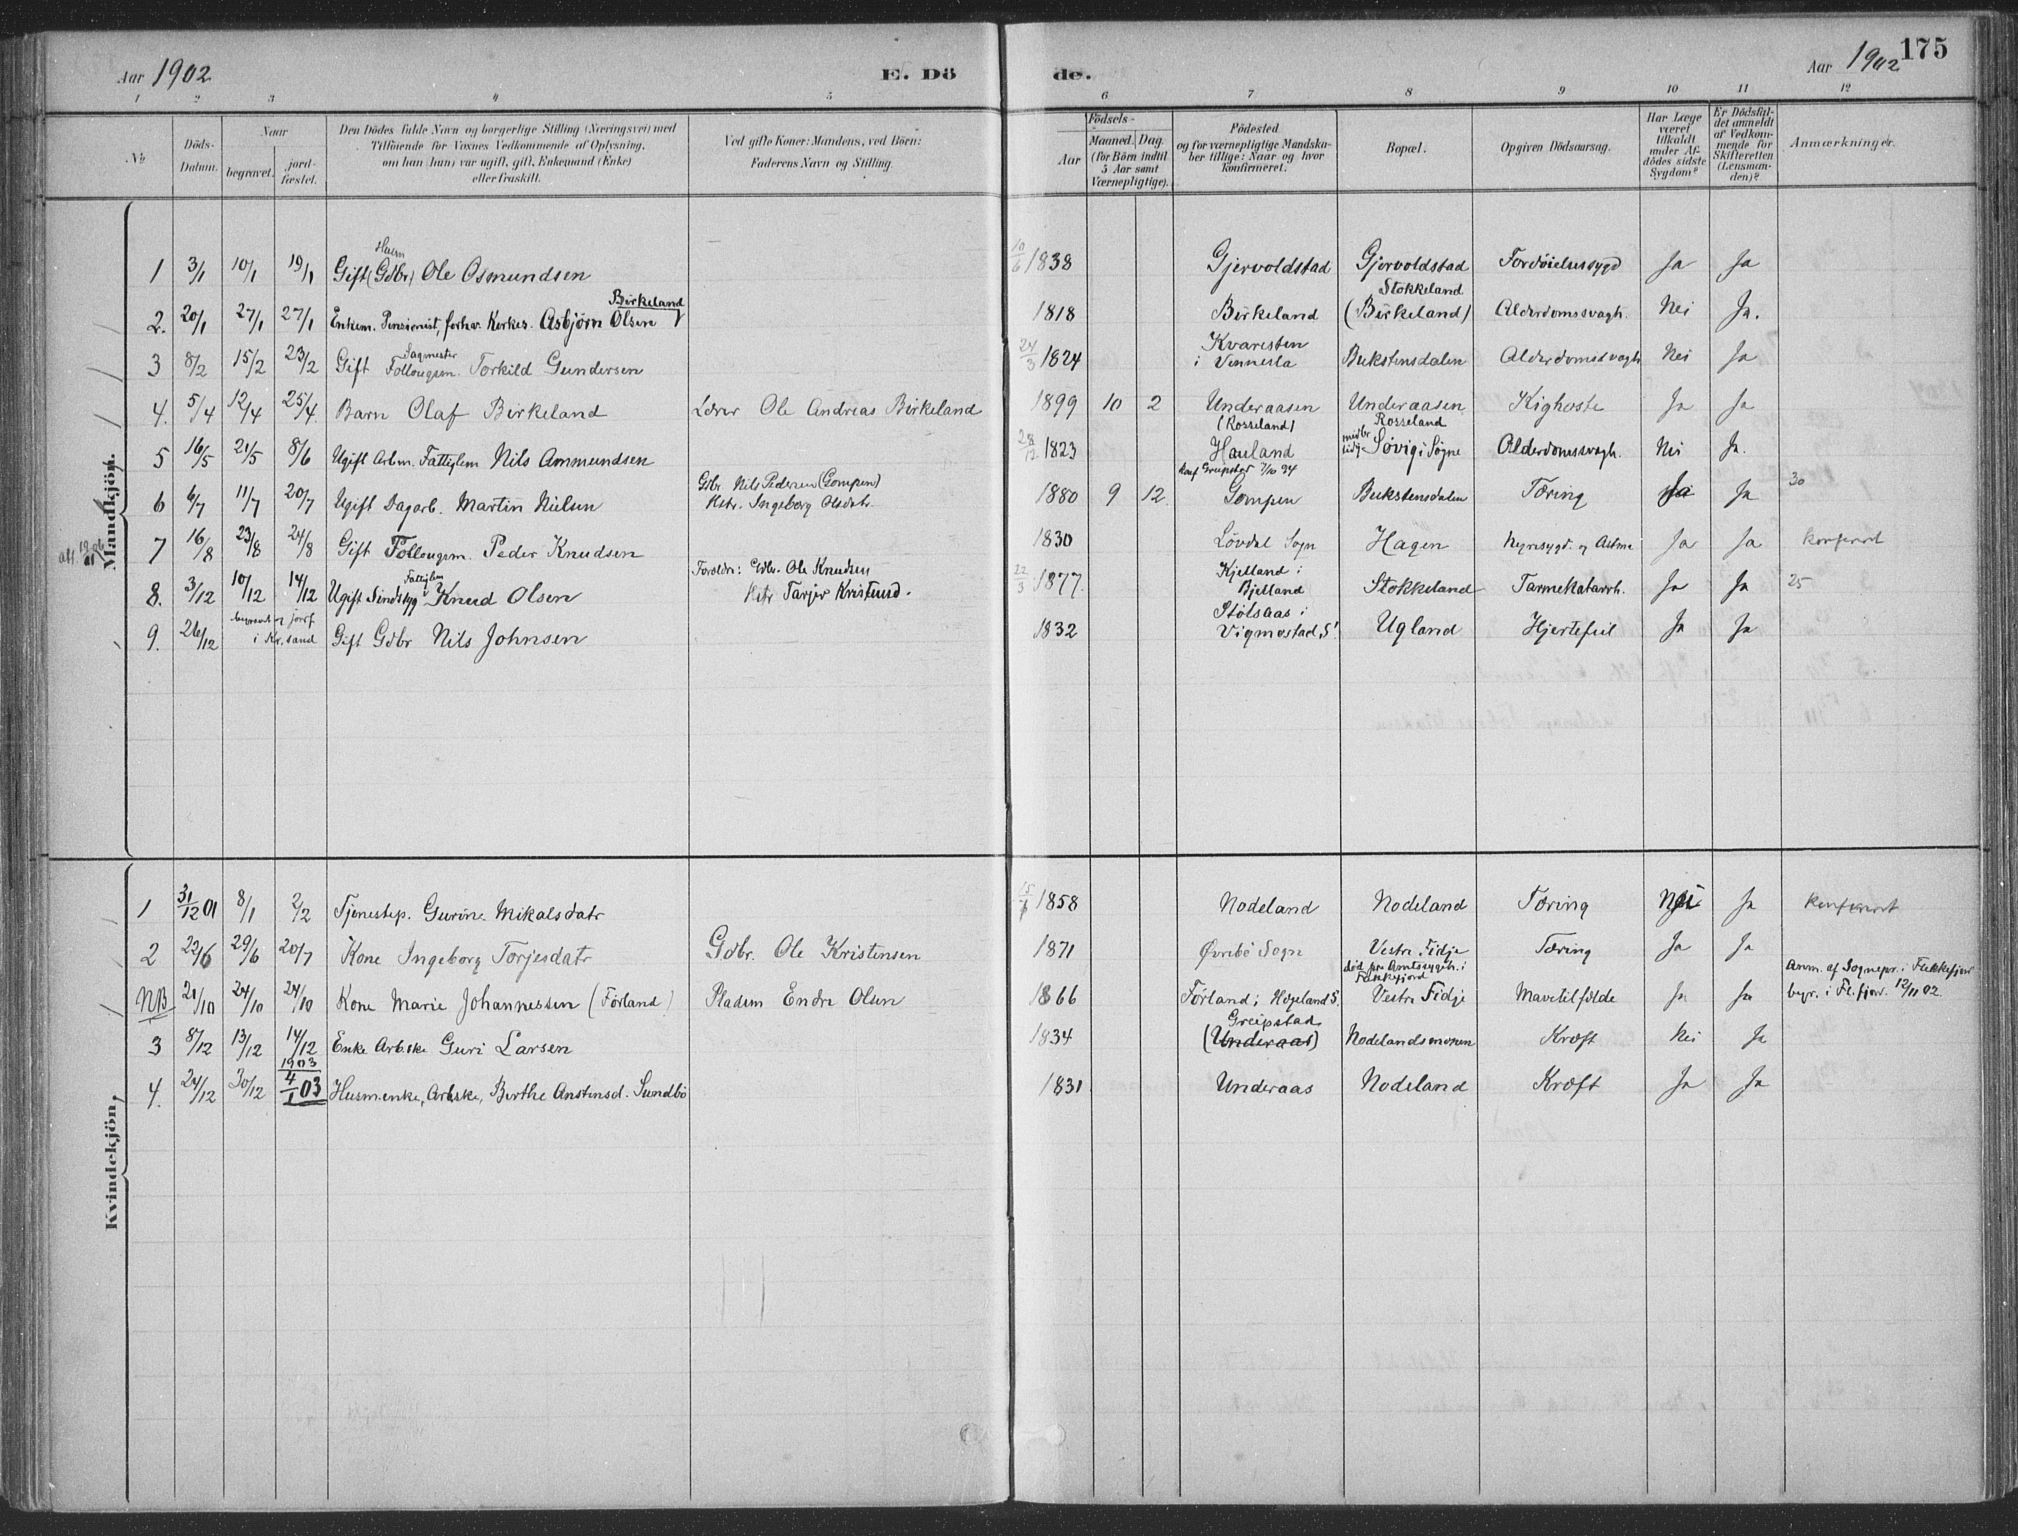 Aar 1902
E. Dö
de.
Aar 1902
175
1 2 3 4 5 6 7 8 9 10 11 12
No
Döds-
Datum.
Naar
begravet.
jord-
fæstet.
Den Dödes fulde Navn og borgerlige Stilling (Næringsvei) med
Tilföiende for Voxnes Vedkommende af Oplysning,
om han (hun) var ugift, gift, Enkemand (Enke)
eller fraskilt.
Ved gifte Koner: Mandens, ved Börn:
Faderens Navn og Stilling.
Födsels-
Aar
Maaned.
Dag.
(for Börn indtil
5 Aar samt
Værnepligtige).
Födested
og for værnepligtige Mandska-
ber tillige: Naar og hvor
konfirmeret.
Bopæl.
Opgiven Dödsaarsag.
Har Læge
været
tilkaldt
under Af-
dödes sidste
Sygdom?
Er Dödsfal-
det anmeldt
af Vedkom-
mende for
Skifteretten
(Lensman-
den)?
Anmærkninger.
Mandkjön.
Husm
1 3/1 10/1 19/1 Gift (Gdbr) Ole Osmundsen 10/6 1838 Gjervoldstad Gjervoldstad Fordøielsessygd Ja Ja
Birkeland Stokkeland
2. 20/1 27/1 27/1 Enkem. Pensionist, forhv. Kirkes. Asbjørn Olsen 1818 Birkeland (Birkeland) Alderdomssvagh. Nei Ja.
Sagmester Kvaresten
3 8/2 15/2 23/2 Gift Follougsm. Torkild Gundersen 24/3 1824 i Vennesla Bukstensdalen Alderdomssvagh Nei Ja
4. 5/4 12/4 25/4 Barn Olaf Birkeland Lærer Ole Andreas Birkeland 1899 10 2 Underaasen Underaasen Kighoste Ja Ja
(Rosseland) Rosseland
5 16/5 21/5 8/6 Ugift Arbm. Fattiglem Nils Ammundsen 28/12 1823 Hauland Søvig i Søgne Alderdomssvagh. Nei Ja.
Gdbr Nils Pedersen (Gompen) konf Greipstad 7/10 94
6 6/7 11/7 20/7 Ugift Dagarb. Martin Nielsen Hstr. Ingeborg Olsdatr. 1880 9 12 Gompen Bukstensdalen Tæring Ja Ja 30
7 16/8 23/8 24/8 Gift Follougsm. Peder Knudsen 1830 Løvdal Sogn Hagen Nyresygd. og Astma Ja Ja konfereret
Fattiglem Foreldre: Gdbr. Ole Knudsen Kjelland i
8. 3/12 10/12 14/12 Ugift Sindssyg Knud Olsen Hstr Tarjer Kristund. 22/3 1877 Bjelland Stokkeland Tarmekatarrh. Ja Ja 25
begravet og jordf Stølsaas i
9. 26/12 i Kr.sand Gift Gdbr Nils Johnsen 1832 Vigmostad S! Ugland Hjertefeil Ja Ja
Kvindekjön,
1 31/12 01 8/1 2/2 Tjenestep. Gurine Mikalsdatr 15/6 1858 Nodeland Nodeland Tæring Nei Ja konfereret
2 22/6 29/6 20/7 Kone Ingeborg Torjesdatr Gdbr. Ole Kristensen 1871 Øvrebø Sogn Vestre Fidje Tæring Ja Ja
død paa Amtssygeh. i
Flekkefjord Anm. af Sognepr. i Flekkefjord
NB 21/10 24/10 24/10 Kone Marie Johannessen (Førland) Pladsm Endre Olsen 1866 Førland i Hægeland S. Vestre Fidje Mavetilfælde Ja Ja begr. i Fl.fjor. 12/11 02
Greipstad
3 8/12 13/12 14/12 Enke Arb.ske Guri Larsen 1834 (Underaas) Nodelandsmonen Kræft Nei Ja
1903
4. 24/12 30/12 4/1 03 Husm.enke, Arbske, Berthe Anstensd. Sundbö 1831 Underaas Nodeland Kræft Ja Ja